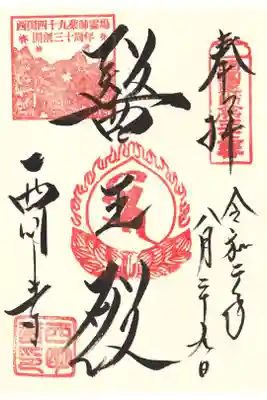 奉拝
令和二年
八月二十九日
醫王殿
西明寺
西国四十九薬師霊場
開創三十周年